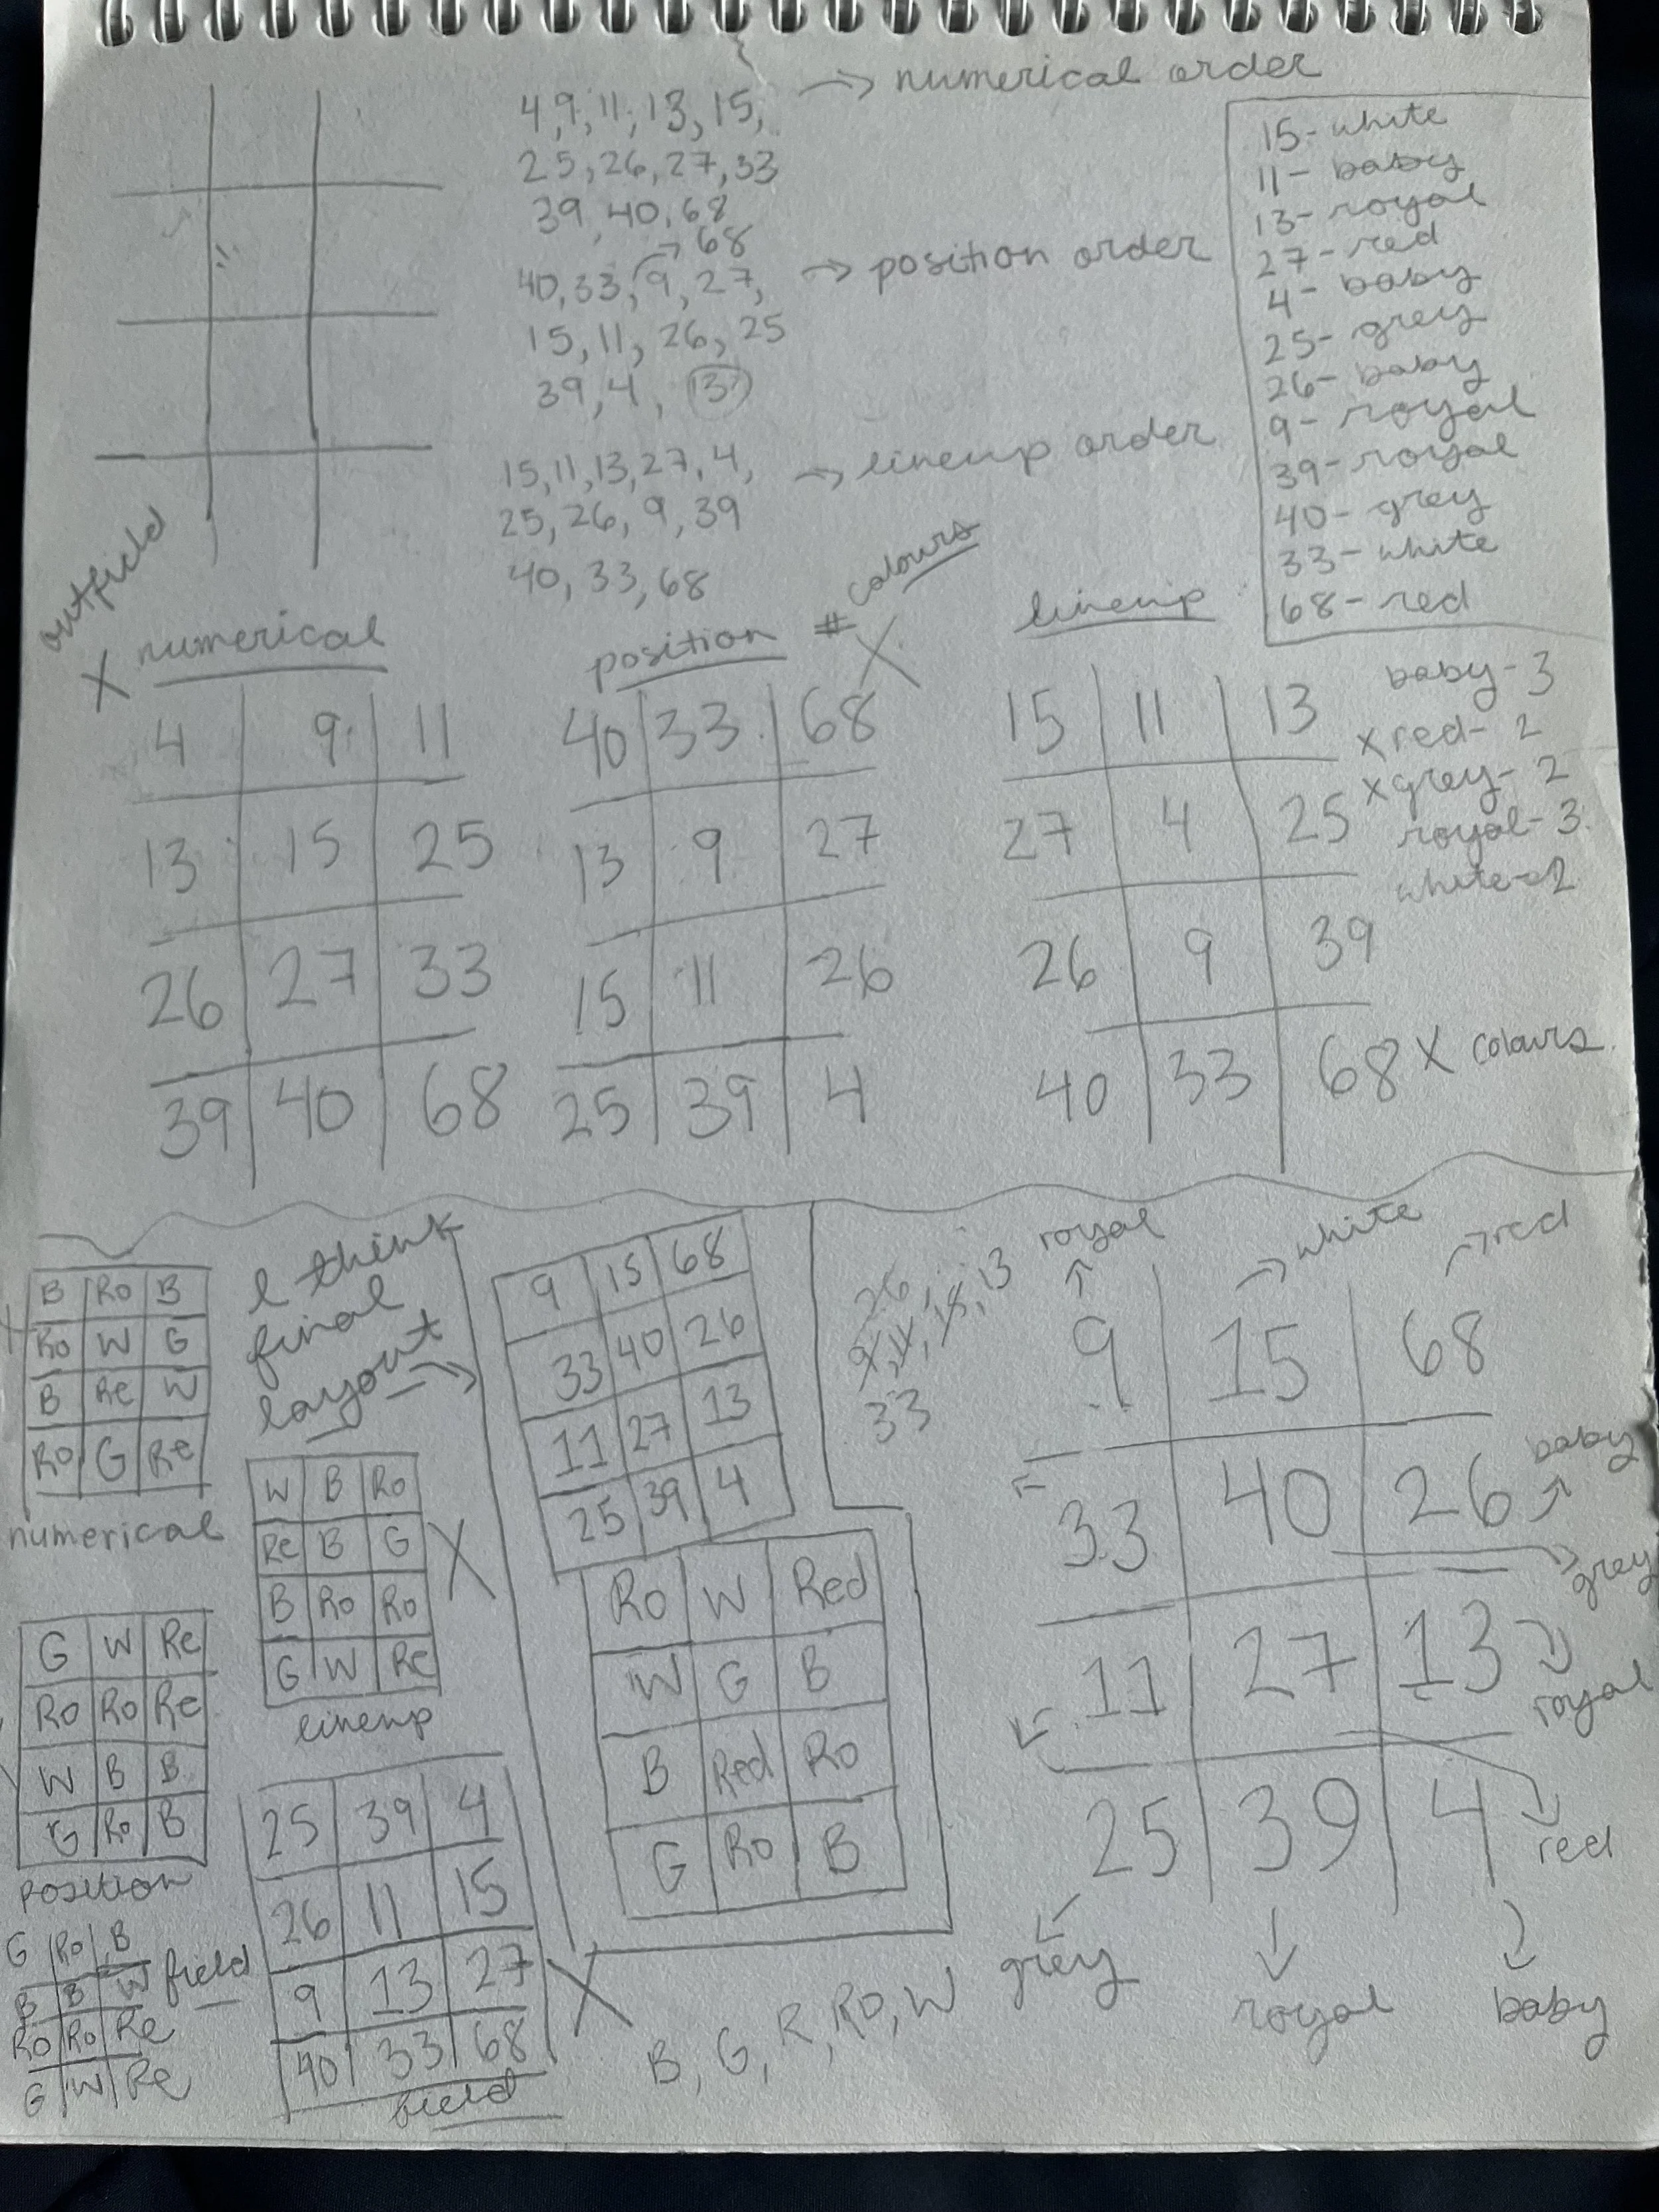 4, 9, 11, 13, 15, → numerical order
25, 26, 27, 33
39, 40, 68
→ 68
40, 33, 9, 27, → position order
15, 11, 26, 25
39, 4, 13
15, 11, 13, 27, 4, → lineup order
25, 26, 9, 39
40, 33, 68
15 - white
11 - baby
13 - royal
27 - red
4 - baby
25 - grey
26 - baby
9 - royal
39 - royal
40 - grey
33 - white
68 - red
outfield
X numerical
4 9 11
13 15 25
26 27 33
39 40 68
position # colours
X
40 33 68
13 9 27
15 11 26
25 39 4
lineup
15 11 13
27 4 25
26 9 39
40 33 68 X colours
baby - 3
x red - 2
x grey - 2
royal - 3
white - 2
B Ro B
Ro W G
B Re W
Ro G Re
numerical
I think
final
layout →
W B Ro
Re B G
B Ro Ro
G W Re
lineup
X
G W Re
Ro Ro Re
W B B
G Ro B
position
G Ro B
B B W
Ro Ro Re
G W Re
field
25 39 4
26 11 15
9 13 27
40 33 68
field
X
9 15 68
33 40 26
11 27 13
25 39 4
Ro W Red
W G B
B Red Ro
G Ro B
B, G, R, Ro, W
26,
9, 4, 15, 13
33
royal → white → red
9 15 68
33 40 26
baby
grey
11 27 13
royal
25 39 4
red
grey royal baby